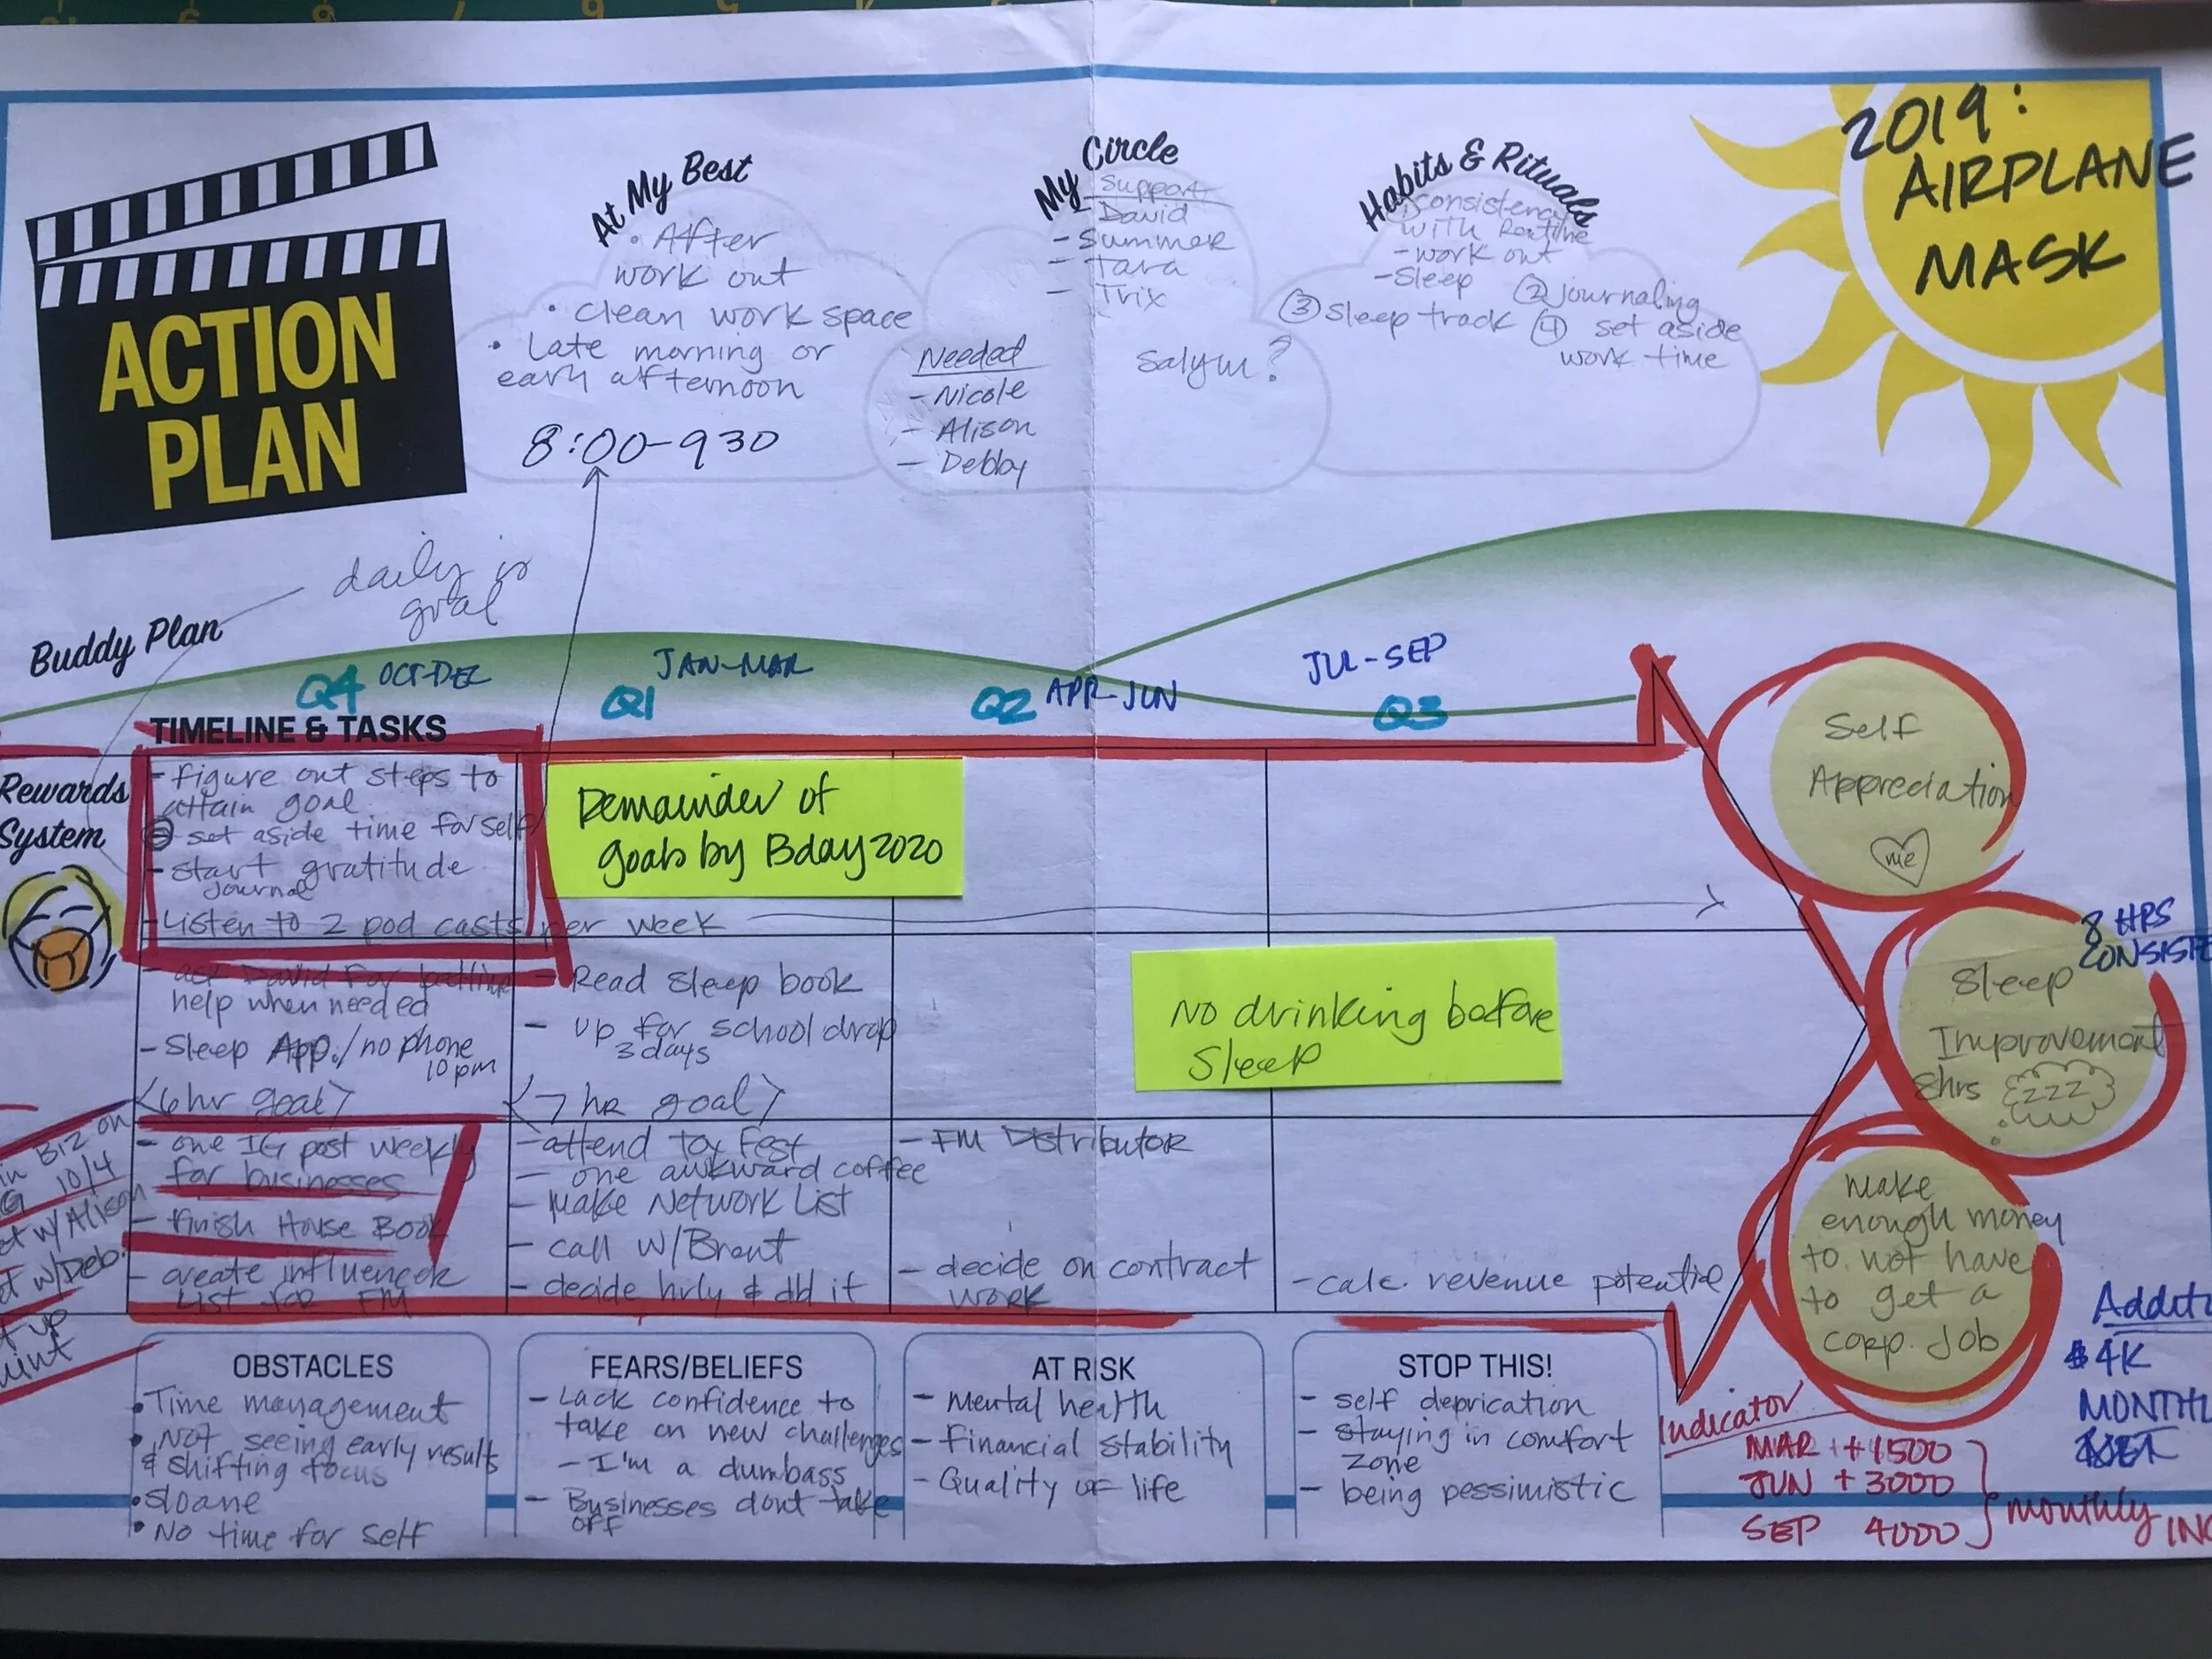 2019:
AIRPLANE
MASK
ACTION
PLAN
At My Best
• After
work out
• clean work space
• Late morning or
early afternoon
8:00-930
My Circle
Support
- David
- Summer
- Tara
- Trix
Needed
- Nicole
- Alison
- Debby
Salym?
Habits & Rituals
① consistency
with Routine
- work out
- Sleep
② journaling
③ Sleep track
④ set aside
work time
daily is
goal
Buddy Plan
Q4 OCT-DEC
Q1 JAN-MAR
Q2 APR-JUN
Q3 JUL-SEP
TIMELINE & TASKS
Rewards
System
- figure out steps to
attain goal
- set aside time for self
- start gratitude
journal
- Listen to 2 pod casts per week
Remainder of
goals by Bday 2020
Self
Appreciation
me
- ask David for
help when needed
- Sleep App./no phone
10 pm
<6 hr goal>
- Read Sleep book
- up for school drop
3 days
<7 hr goal>
No drinking before
Sleep
8 HRS
Sleep
Improvement
8hrs zzz
- one IG post weekly
for businesses
- finish House Book
- create influencer
List for FM
- attend Toy Fest
- one awkward coffee
- Make Network List
- call w/Brent
- decide hrly & dd it
- FM Distributor
- decide on contract
work
- calc. revenue potential
make
enough money
to not have
to get a
corp. job
in Biz on
10/4
w/Alison
w/Deb.
up
$4K
OBSTACLES
• Time management
• Not seeing early results
& shifting focus
• Sloane
• No time for self
FEARS/BELIEFS
- Lack confidence to
take on new challenges
- I'm a dumbass
- Businesses dont take
off
AT RISK
- Mental health
- Financial stability
- Quality of life
STOP THIS!
- self deprication
- staying in comfort
zone
- being pessimistic
Indicator
MAR ++1500
JUN +3000
SEP 4000
monthly